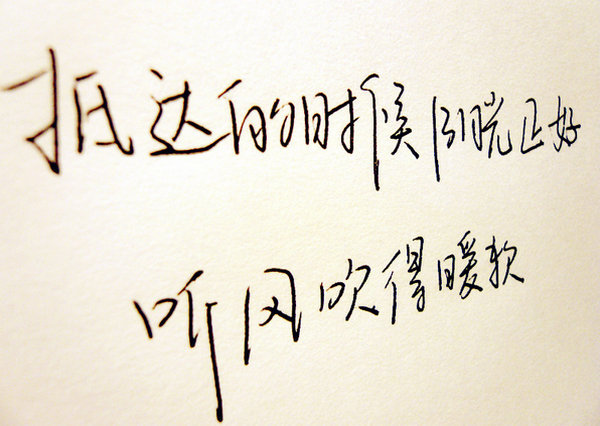 抵达的时候阳光正好
听风吹得暖软